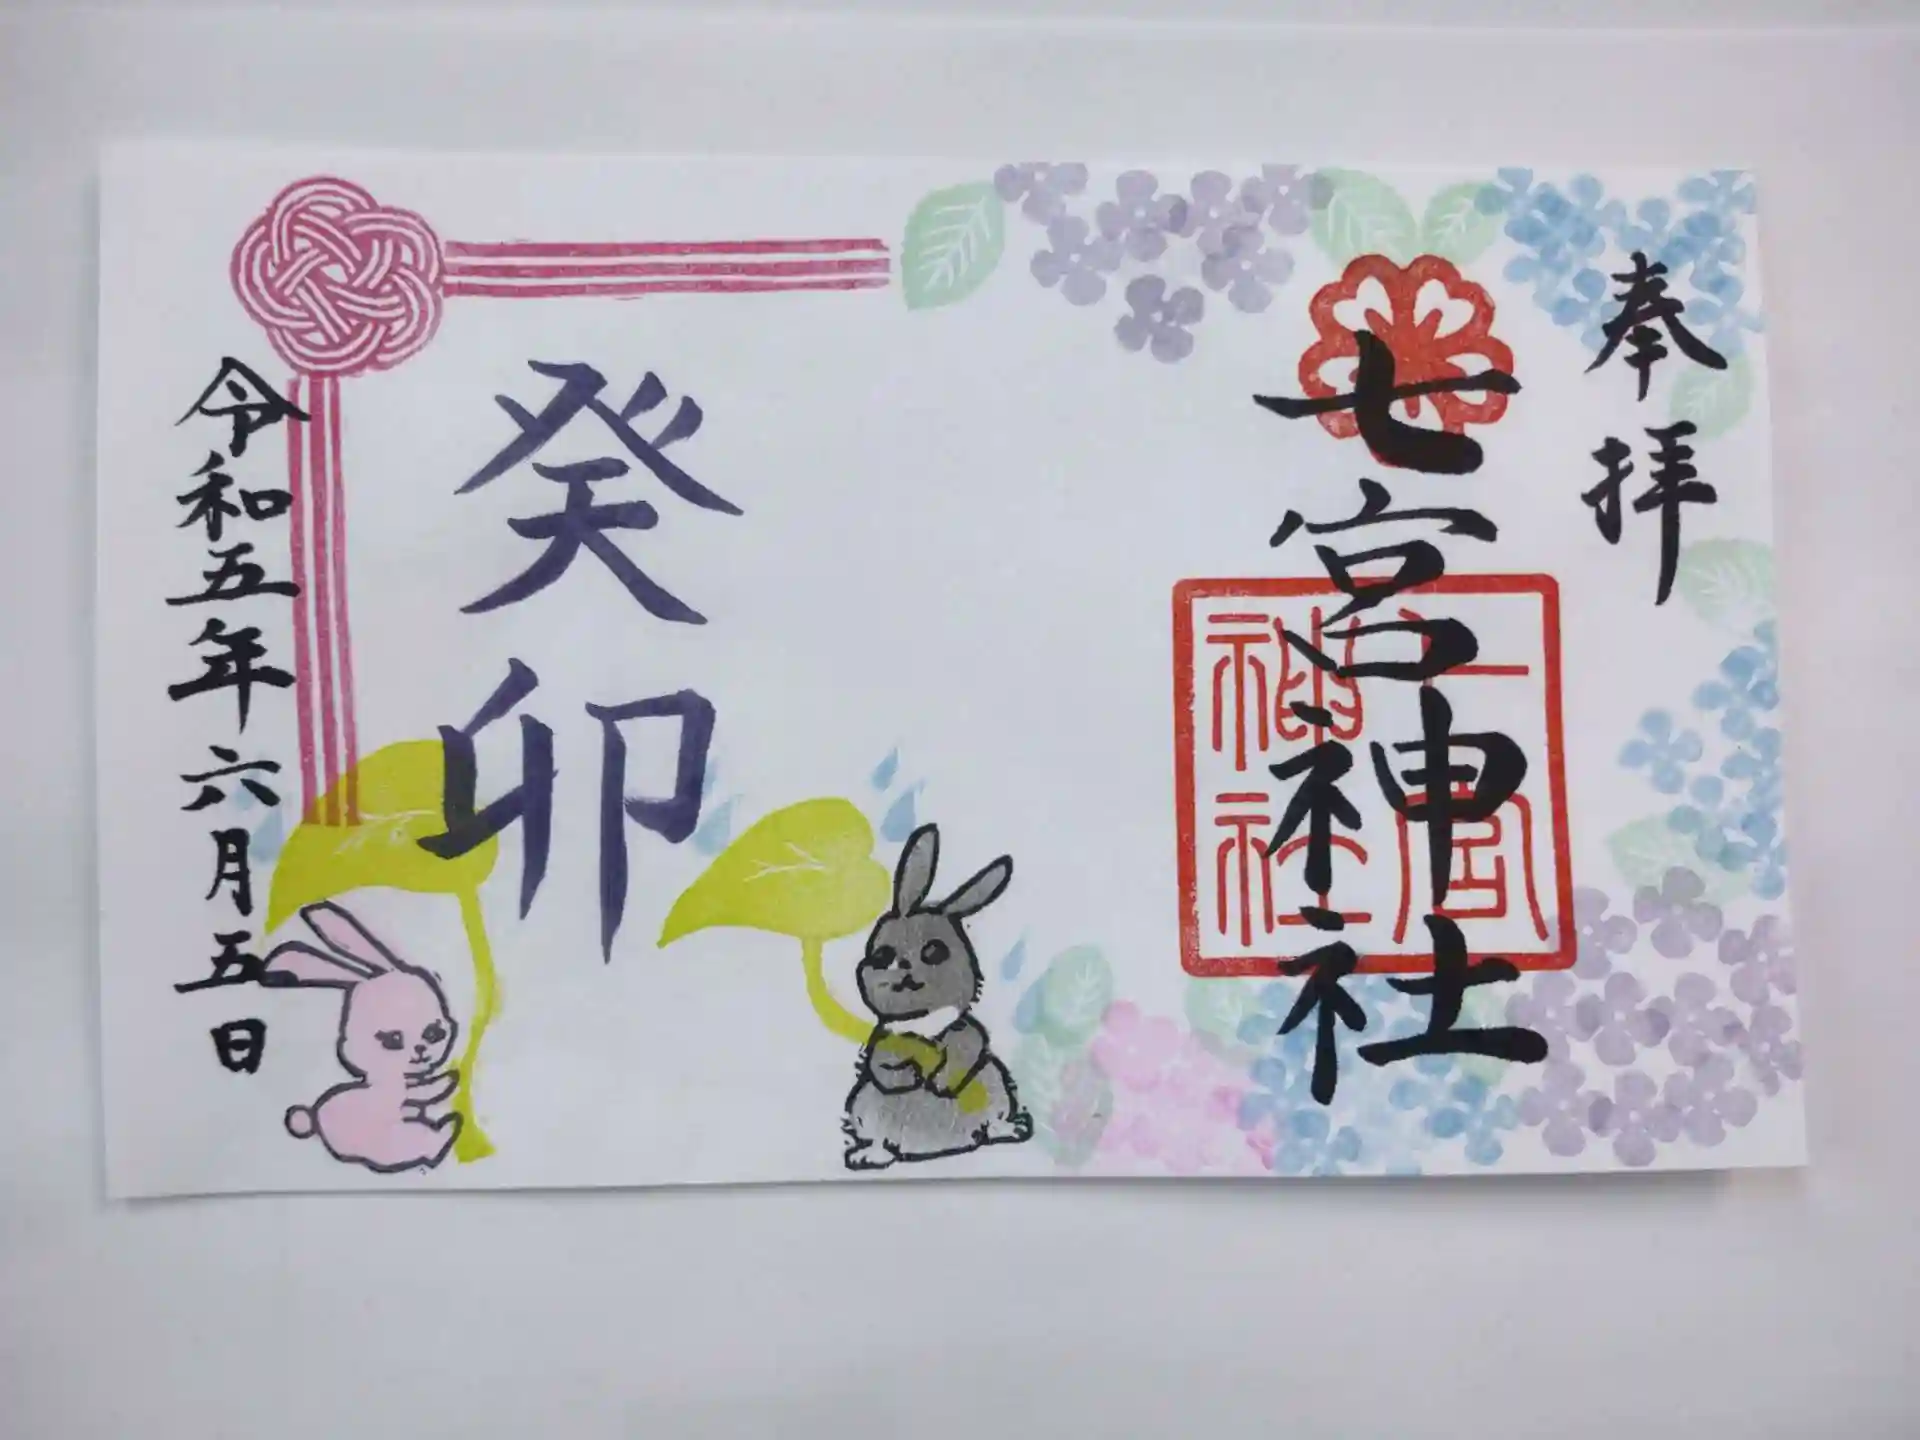 奉拝
七宮神社
七宮神社
癸卯
令和五年六月五日